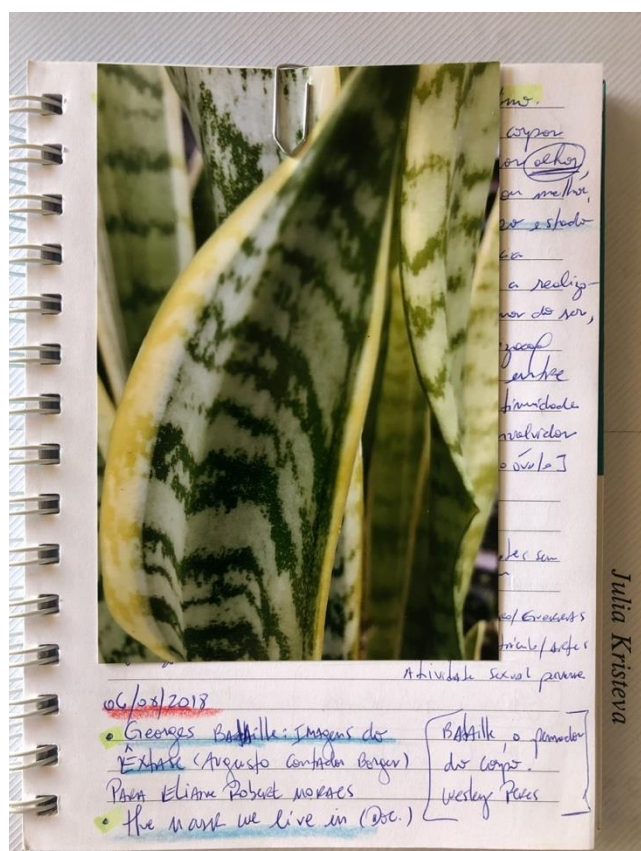 mo.
corpor
or olhor
ou melhor,
estado
a realiza-
mor do ser,
entre
tinuidade
nvolvidos
o óvulo]
des sem
Atividade sexual perversa
06/08/2018
• Georges Bataille: Imagens do
Êxtase (Augusto Contador Borges)
Para Eliane Robert Moraes
• The mask we live in (Doc.)
Bataille, o pensador
do corpo.
Wesley Peres
Julia Kristeva